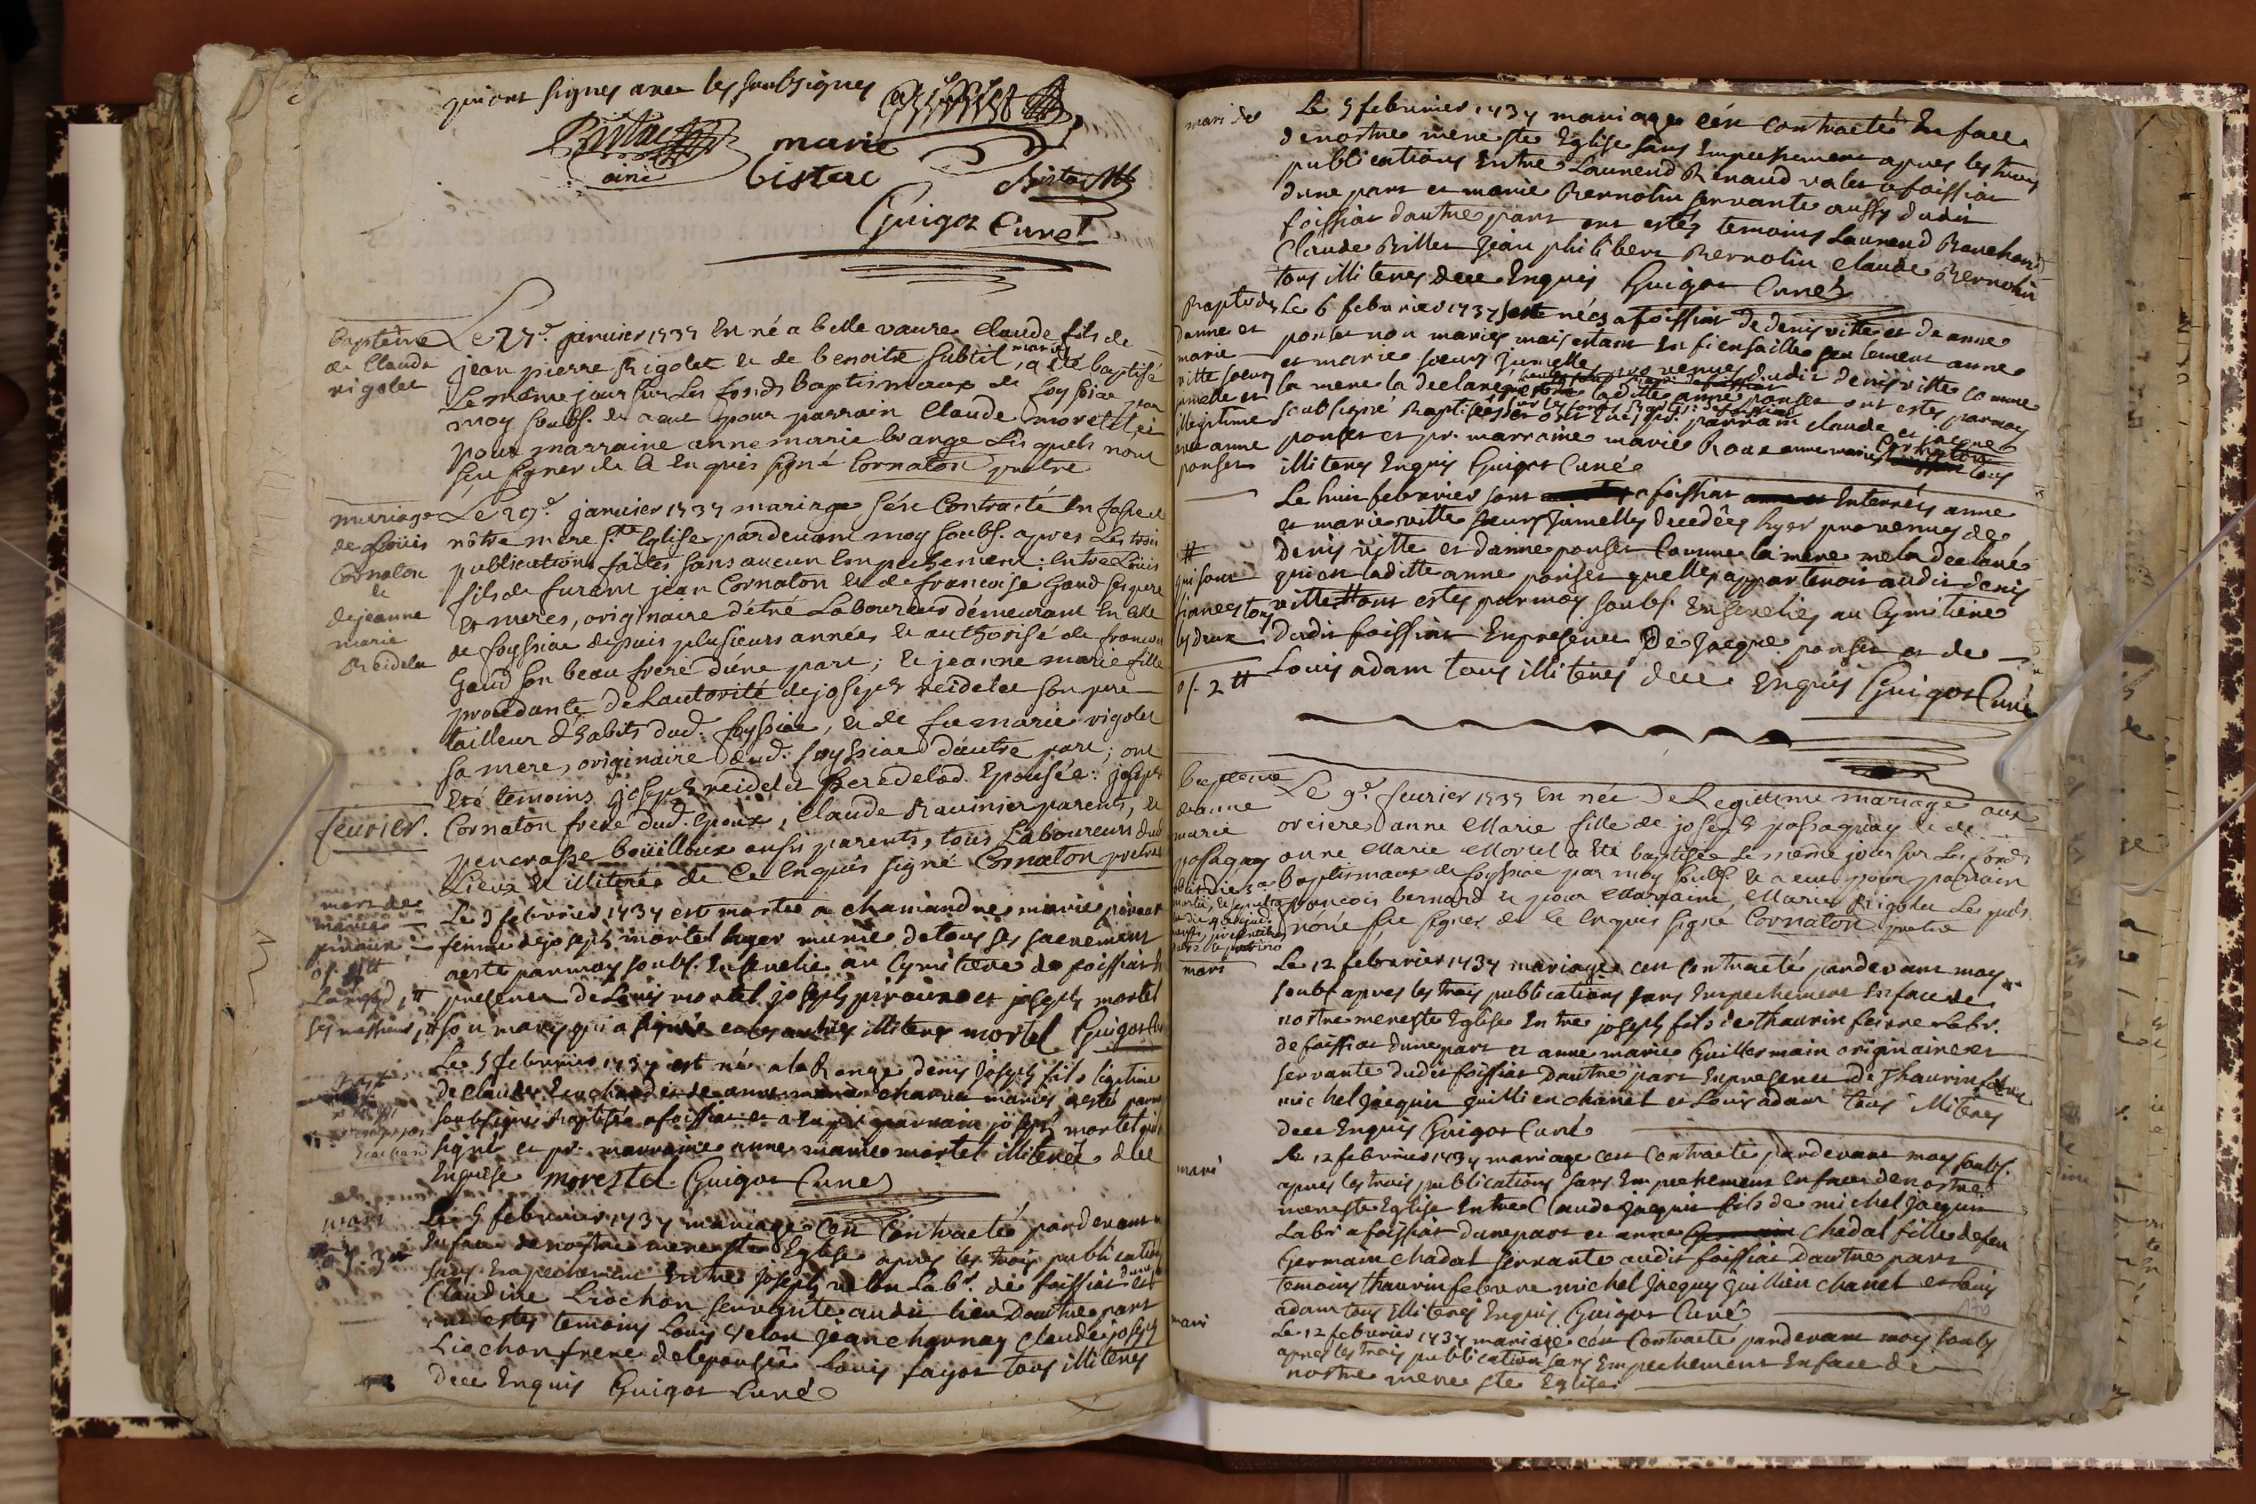 qui ont signes avec les soubsignes
Bistac
ainé
marie
bistac
Bistac
Guigot Curé
baptême
de Claude
rigolet
Le 27e janvier 1737 En né a belle vavre Claude fils de
jean pierre Rigolet et de benoitte subtil, mariés a été baptisé
Le même jour sur Les fonds baptismaux de foyssiat par
moy soubs. et a eut pour parrain Claude moretel, et
pour marraine anne marie brange Lesquels n'ont
sçu signer de Ce Enquis signé Cornaton prêtre
mariage
de Loüis
Cornaton
et
de jeanne
marie
Reidelet
Le 29e janvier 1737 mariage s'ést Contracté En face de
nôtre mere ste Eglise pardevant moy soubs. apres Les trois
publications faites sans aucun Empechement: Entre Loüis
fils de furent jean Cornaton et de francoise Gaud ses pere
et meres, originaire d'étré Laboureur démeurant En
de foyssiat depuis plusieurs années et authorisé de francois
Gaud son beau frere d'une part; et jeanne marie fille
procedante de Lautorité de joseph reidelet son pere
tailleur d'habits dud. foyssiat, et de fu marie rigolet
sa mere, originaire dud. foyssiat d'autre part; ont
Eté temoins joseph reidelet pere de lad. Epousée: joseph
Cornaton frere dud. Epoux, Claude Ravinier parents, et
bouilloux aussi parents, tous Laboureurs dud
Lieux et illiteré de Ce Enquis signé Cornaton prêtre
fevrier.
mort de
marie
piroux
Le 3 febvrier 1737 est mortte a chamandre marie piroux
femme de joseph mortel hyer munie de tous ses sacrements
a este par moy soubs. Ensevelie au Cymetiere de foissiat En
presence de Louis mortel joseph piroux et joseph mortel
son mary qui a signé et les autres illiteres mortel Guigot Curé
Le 5 febvrier 1737 est né a la Range denis Joseph fils legitime
de claude Liochon et de anne marie charna mariés a esté par moy
soubsigne baptisé a foissiat et a Eu pr. parrain joseph mortel qui a
signé et pr. marraine anne marie mortel illiterée de ce
Enquise morestel Guigot Curé
mari
Le 5 febvrier 1737 mariage cest Contracté pardevant
En face de nostre mere ste Eglise apres les trois publications
sans Empechement Entre Joseph velon Labr. de foissiat dune part et
Claudine Liochon servante audit lieu Dautre part
ont estes temoins Louis velon Jean charnay claude joseph
Liochon frere de lepousée Louis fayot tous illiteres
dece Enquis Guigot Curé
mari des
Le 5 febvrier 1737 mariage cest Contracté En face
de nostre mere ste Eglise sans Empechement apres les trois
publications Entre Laurend Renaud valet a foissiat
dune part et marie Bernolin servante aussy dudit
foissiat dautre part ont estés temoins Laurend Banchard
Claude Billet Jean philibert Bernolin Claude Bernolin
tous illiteres dece Enquis Guigot Curé
Bapte des
danne et
marie
vitte soeurs
jumelle et
illegitime
avec anne
ponset
Le 6 febvrier 1737 sont nées a foissiat de denis vitte et de anne
ponset non mariés mais estant En fiensaille seulement anne
et marie soeurs Jumelle provenues dudit denis vitte comme
la mere la declaré laditte anne ponset ont estes par moy
soubsigné Baptisées et ont Eu pr. parrain claude et jacque
ponset et pr. marraine marie Roux anne marie Cornaton tous
illiteres Enquis Guigot Curé
Le huit febvrier sont a foissiat Enterrées anne
et marie vitte soeurs Jumelles decedées hyer provenues de
denis vitte et danne ponset Comme la mere me la declaré
qui est laditte anne ponset quelles appartenoit audit denis
vitte # ont estes par moy soubs. Ensevelies au Cymetiere
dudit foissiat En presence De Jacque ponset et de
Louis adam tous illiterés dece Enquis Guigot Curé
#
qui sont
fiancés tous
les deux
baptême
d'anne
marie
passaquay
Le 9e fevrier 1737 En née De Legittime mariage aux
orcieres anne Marie fille de joseph passaquay et de
anne Marie Mortel a Eté baptisée Le même jour sur Les fonds
baptismaux de foyssiat par moy soubs. et a eut pour parrain
francois bernard et pour Marraine, Marie Rigolet Lesquels
n'ont sçu signer de Ce Enquis signé Cornaton prêtre
mari
Le 12 febvrier 1737 mariage cest Contracté pardevant moy
soubs apres les trois publications sans Empechement En face de
nostre mere ste Eglise Entre joseph fils de thaurin febvre Labr.
de foissiat dune part et anne marie Guillermain originaire et
servante dudit foissiat Dautre part En presence de Thaurin febvre
michel Jacquin guillien chanel et Louis adam tous illiterés
dece Enquis Guigot Curé
mari
Le 12 febvrier 1737 mariage cest Contracté pardevant moy soubs.
apres les trois publications sans Empechement En face de nostre
mere ste Eglise Entre Claude Jacquin fils de michel Jacquin
Labr. a foissiat dune part et anne chadal fille de feu
Germain chadal servante audit foissiat Dautre part
temoins thaurin febvre michel Jacquin guillien chanel et Louis
adam tous illiteres Enquis Guigot Curé
mari
Le 12 febvrier 1737 mariage cest Contracté pardevant moy soubs
apres les trois publication sans Empechement En face de
nostre mere ste Eglise